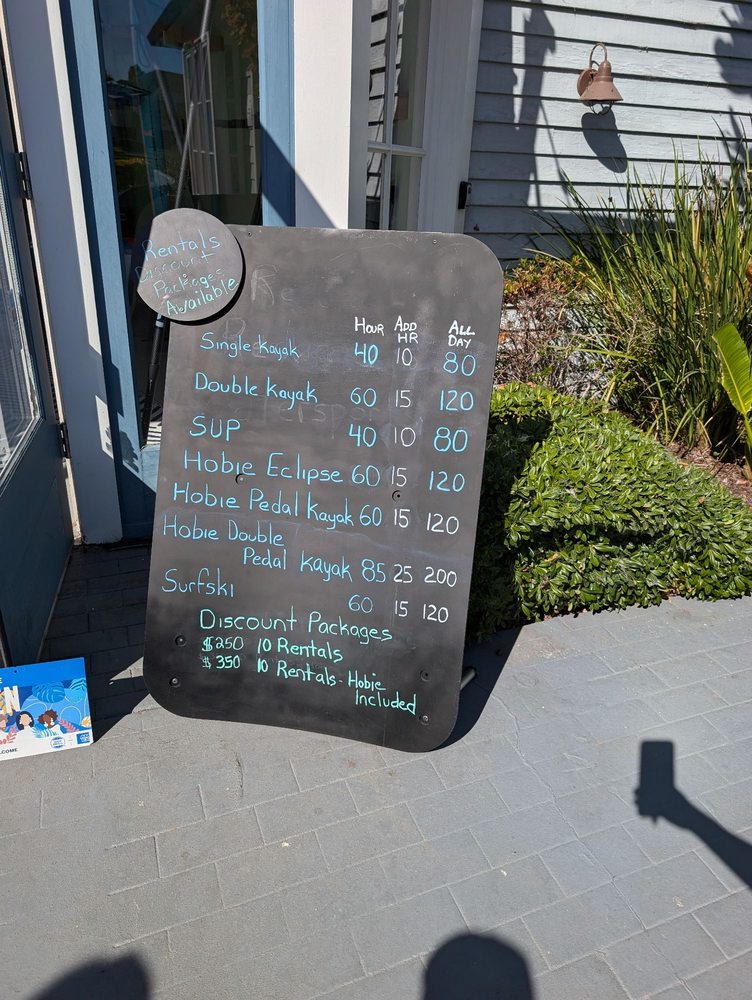 Rentals
Discount
Packages
Available
HOUR ADD HR ALL DAY
Single Kayak 40 10 80
Double Kayak 60 15 120
SUP 40 10 80
Hobie Eclipse 60 15 120
Hobie Pedal Kayak 60 15 120
Hobie Double
Pedal Kayak 85 25 200
Surfski 60 15 120
Discount Packages
$250 10 Rentals
$350 10 Rentals - Hobie
Included